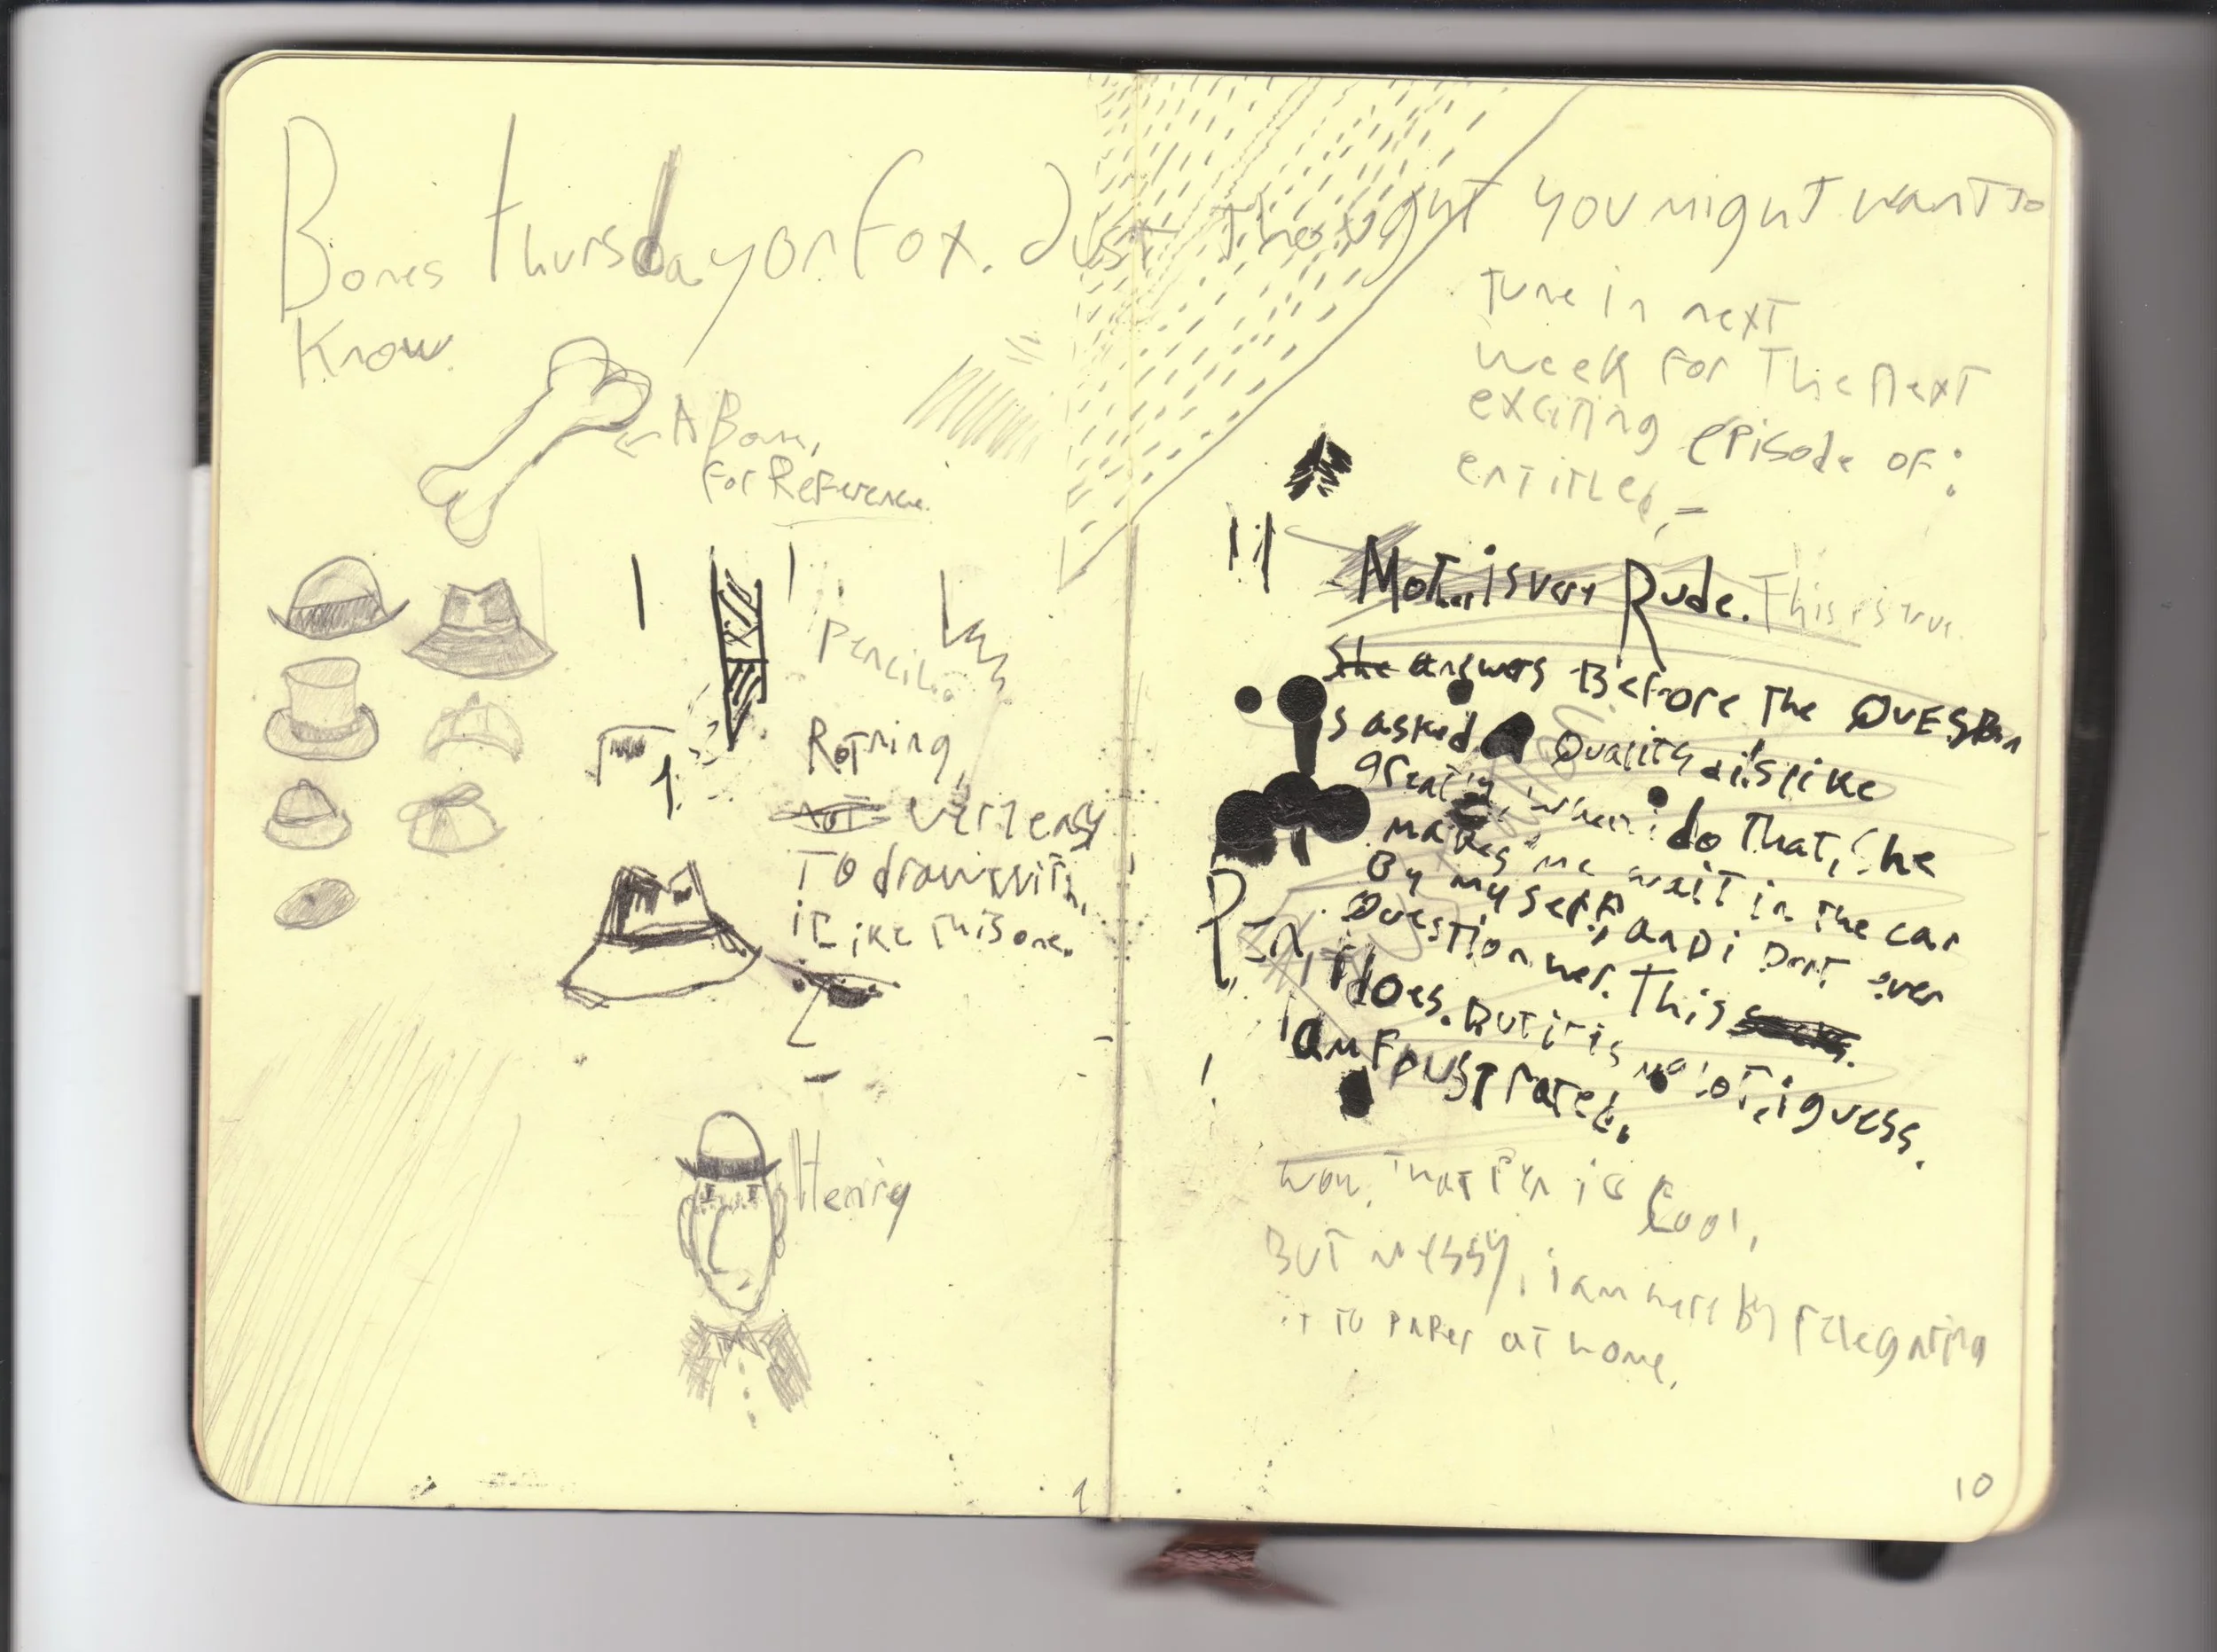 Bones thursday on Fox. Just thought you might want to
Know.
A Bone,
for Reference.
tune in next
week for The next
exciting episode of:
entitled,-
Pencil.
Rotring
Not very easy
To draw with,
i Like This one.
Henry
Mother is very Rude. This is true.
She answers Before The QUESTion
is asked Quality i dislike
greatly, when i do That, She
makes me wait in The car
By myself, and i Dont even
Question her. This sucks.
Pen, it does. But it is not a lot, i guess.
i am Frustrated.
Wow, That Pen is Cool,
BUT Messy, i am here by relegating
it To paper at home.
9
10